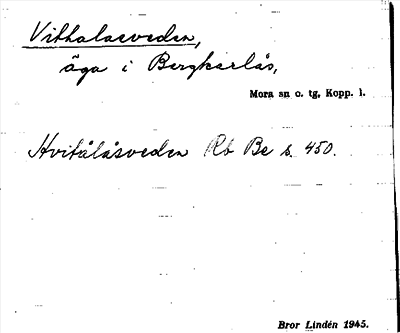 Vithalasveden,
äga i Bergkarlås,
Mora sn o. tg, Kopp. l.
Hvitålåsveden Rb Be s. 450.
Bror Lindén 1945.